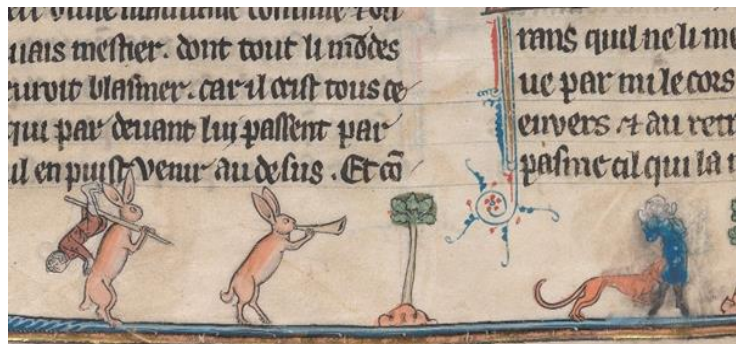 uais mestier. dont tout li mōdes
blasmer. car il ocist tous ce
qui par deuant lui passent par
il en puist uenir au desus. Et cō
rans quil ne li me
ue par mi le cors
enuers ⁊ au retr
pasme cil qui la